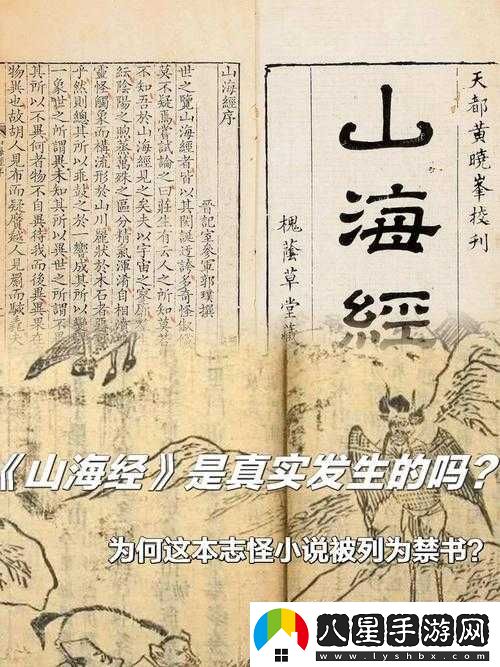 天都黄曉峯校刊
山海經
槐蔭草堂藏
山海經序
晉記室參軍郭璞撰
世之覽山海經者皆以其閎誕迂誇多奇怪俶儻
莫不疑焉嘗試論之曰莊生有云人之所知莫若
不知吾於山海經見之矣夫以宇宙之寥廓
紜陰陽之煦蒸萬殊之區分精氣渾淆自相
靈怪觸象而構流形於山川麗狀於木石者惡
乎然則總其所以乖鼓之於一響成其所以變
一象世之所謂異未知其所以異世之所謂不異
其所以不異何者物不自異待我而後異異果在
物異也故胡人見布而疑黂越人見罽而駭
《山海经》是真实发生的吗?
为何这本志怪小说被列为禁书?
八星手游网
www.lyshbx.com